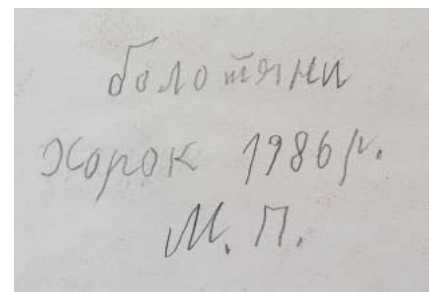 болотяни
хорок 1986р.
М. П.